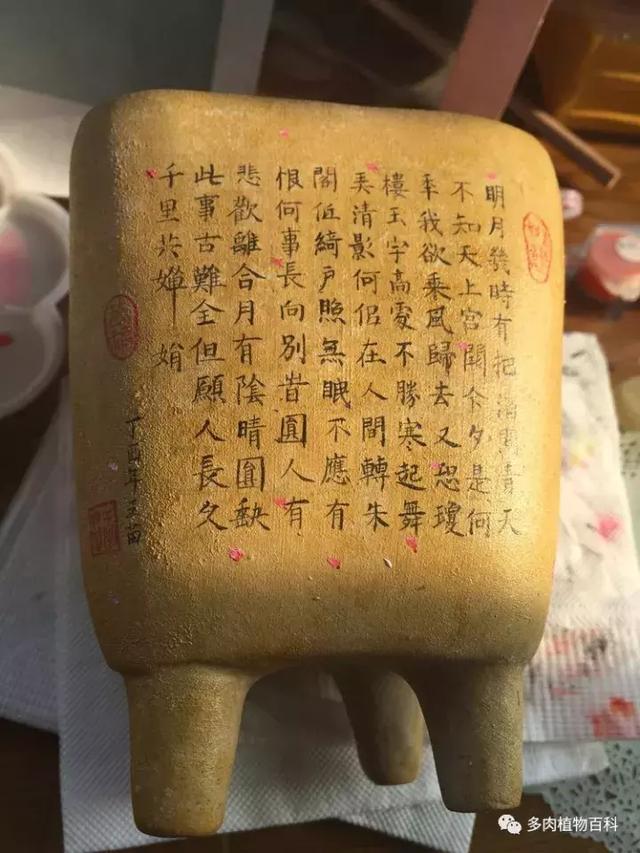 明月幾時有把酒問青天
不知天上宮闕今夕是何
年我欲乘風歸去又恐瓊
樓玉宇高處不勝寒起舞
弄清影何佀在人間轉朱
閣低綺戶照無眠不應有
恨何事長向別昔圓人有
悲歡離合月有陰晴圓缺
此事古難全但願人長久
千里共嬋娟
丁酉年
多肉植物百科